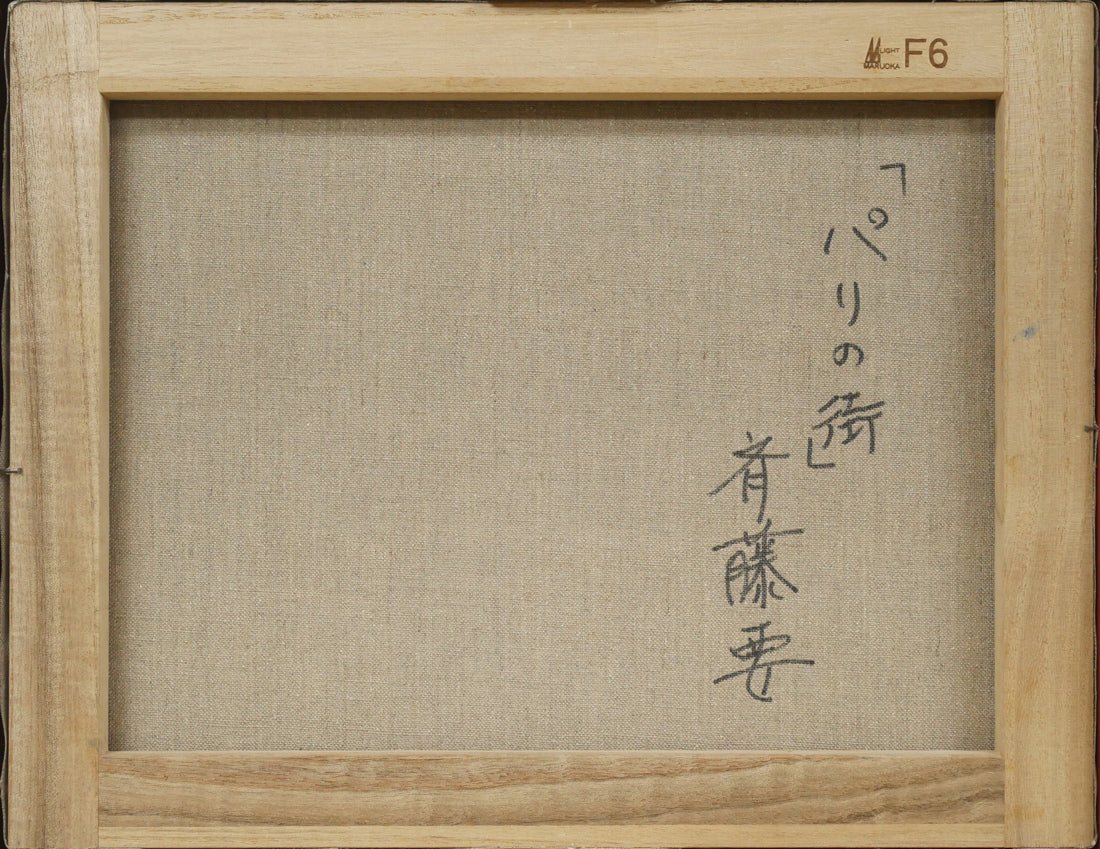 「パリの街」
斉藤要
LIGHT
MARUOKA F6